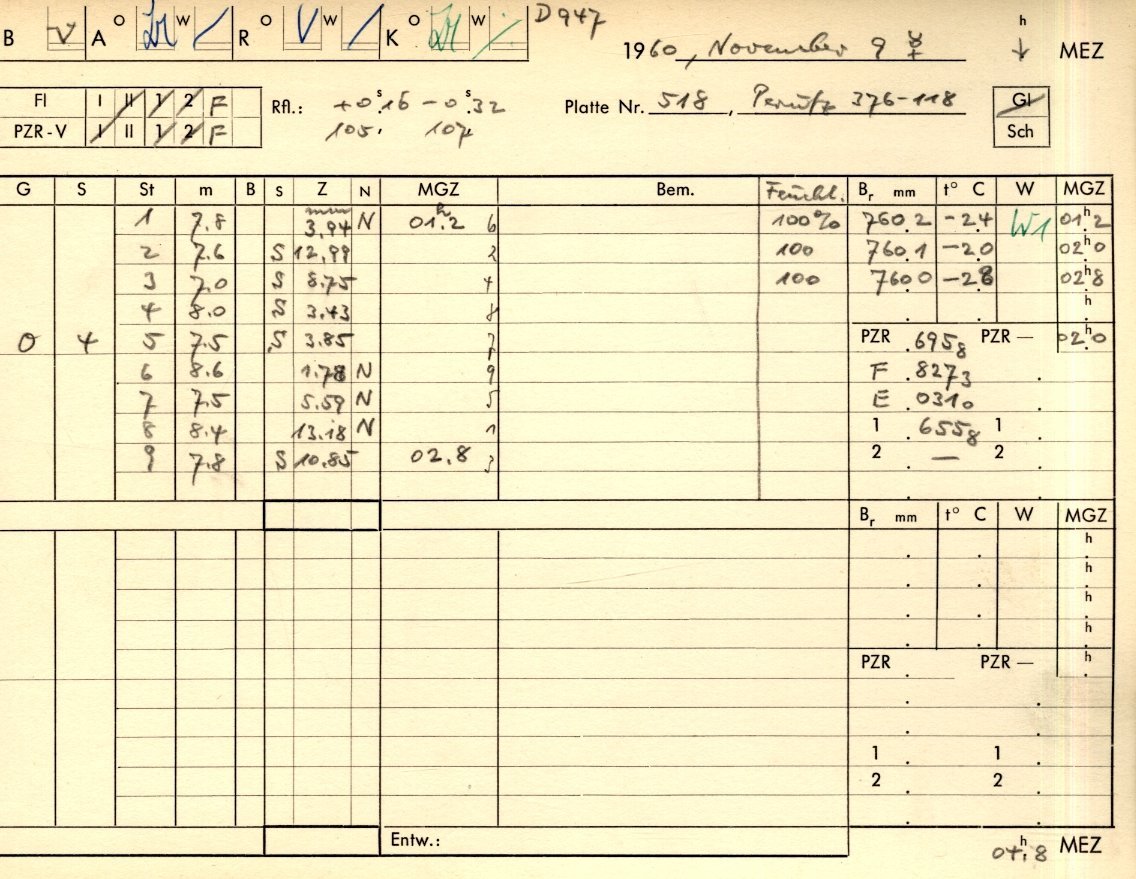 B A O W R O W K O W D 947
1960, November 9 ☿ h MEZ
FI I II 1 2 F Rfl.: +0ˢ16 -0ˢ32 Platte Nr. 518, Perutz 376-118 Gl
PZR-V I II 1 2 F 105. 107 Sch
G S St m B S Z N MGZ Bem. Feucht. Br mm t° C W MGZ
1 7.8 mm 3.94 N 01.2ʰ 6 100% 760.2 -2.4 W1 01ʰ.2
2 7.6 S 12.99 2 100 760.1 -2.0 02ʰ.0
3 7.0 S 8.75 4 100 760.0 -2.8 02ʰ.8
4 8.0 S 3.43 8 h
0 4 5 7.5 S 3.85 7 PZR .6958 PZR — 02ʰ.0
6 8.6 1.78 N 9 F .8273
7 7.5 5.59 N 5 E .0310
8 8.4 13.18 N 1 1 .6558 1
9 7.8 S 10.85 02.8 3 2 — 2
Br mm t° C W MGZ
h
h
h
h
PZR PZR — h
1 1
2 2
Entw.:
04ʰ.8 MEZ